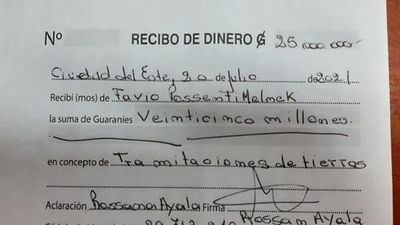 Nº RECIBO DE DINERO ₲ 25.000.000
Ciudad del Este, 20 de Julio de 2021
Recibí (mos) de Favio Possenti Malmek
la suma de Guaraníes Veinticinco millones.
en concepto de Tramitaciones de tierras
Aclaración Rossana Ayala Firma
Rossam Ayala